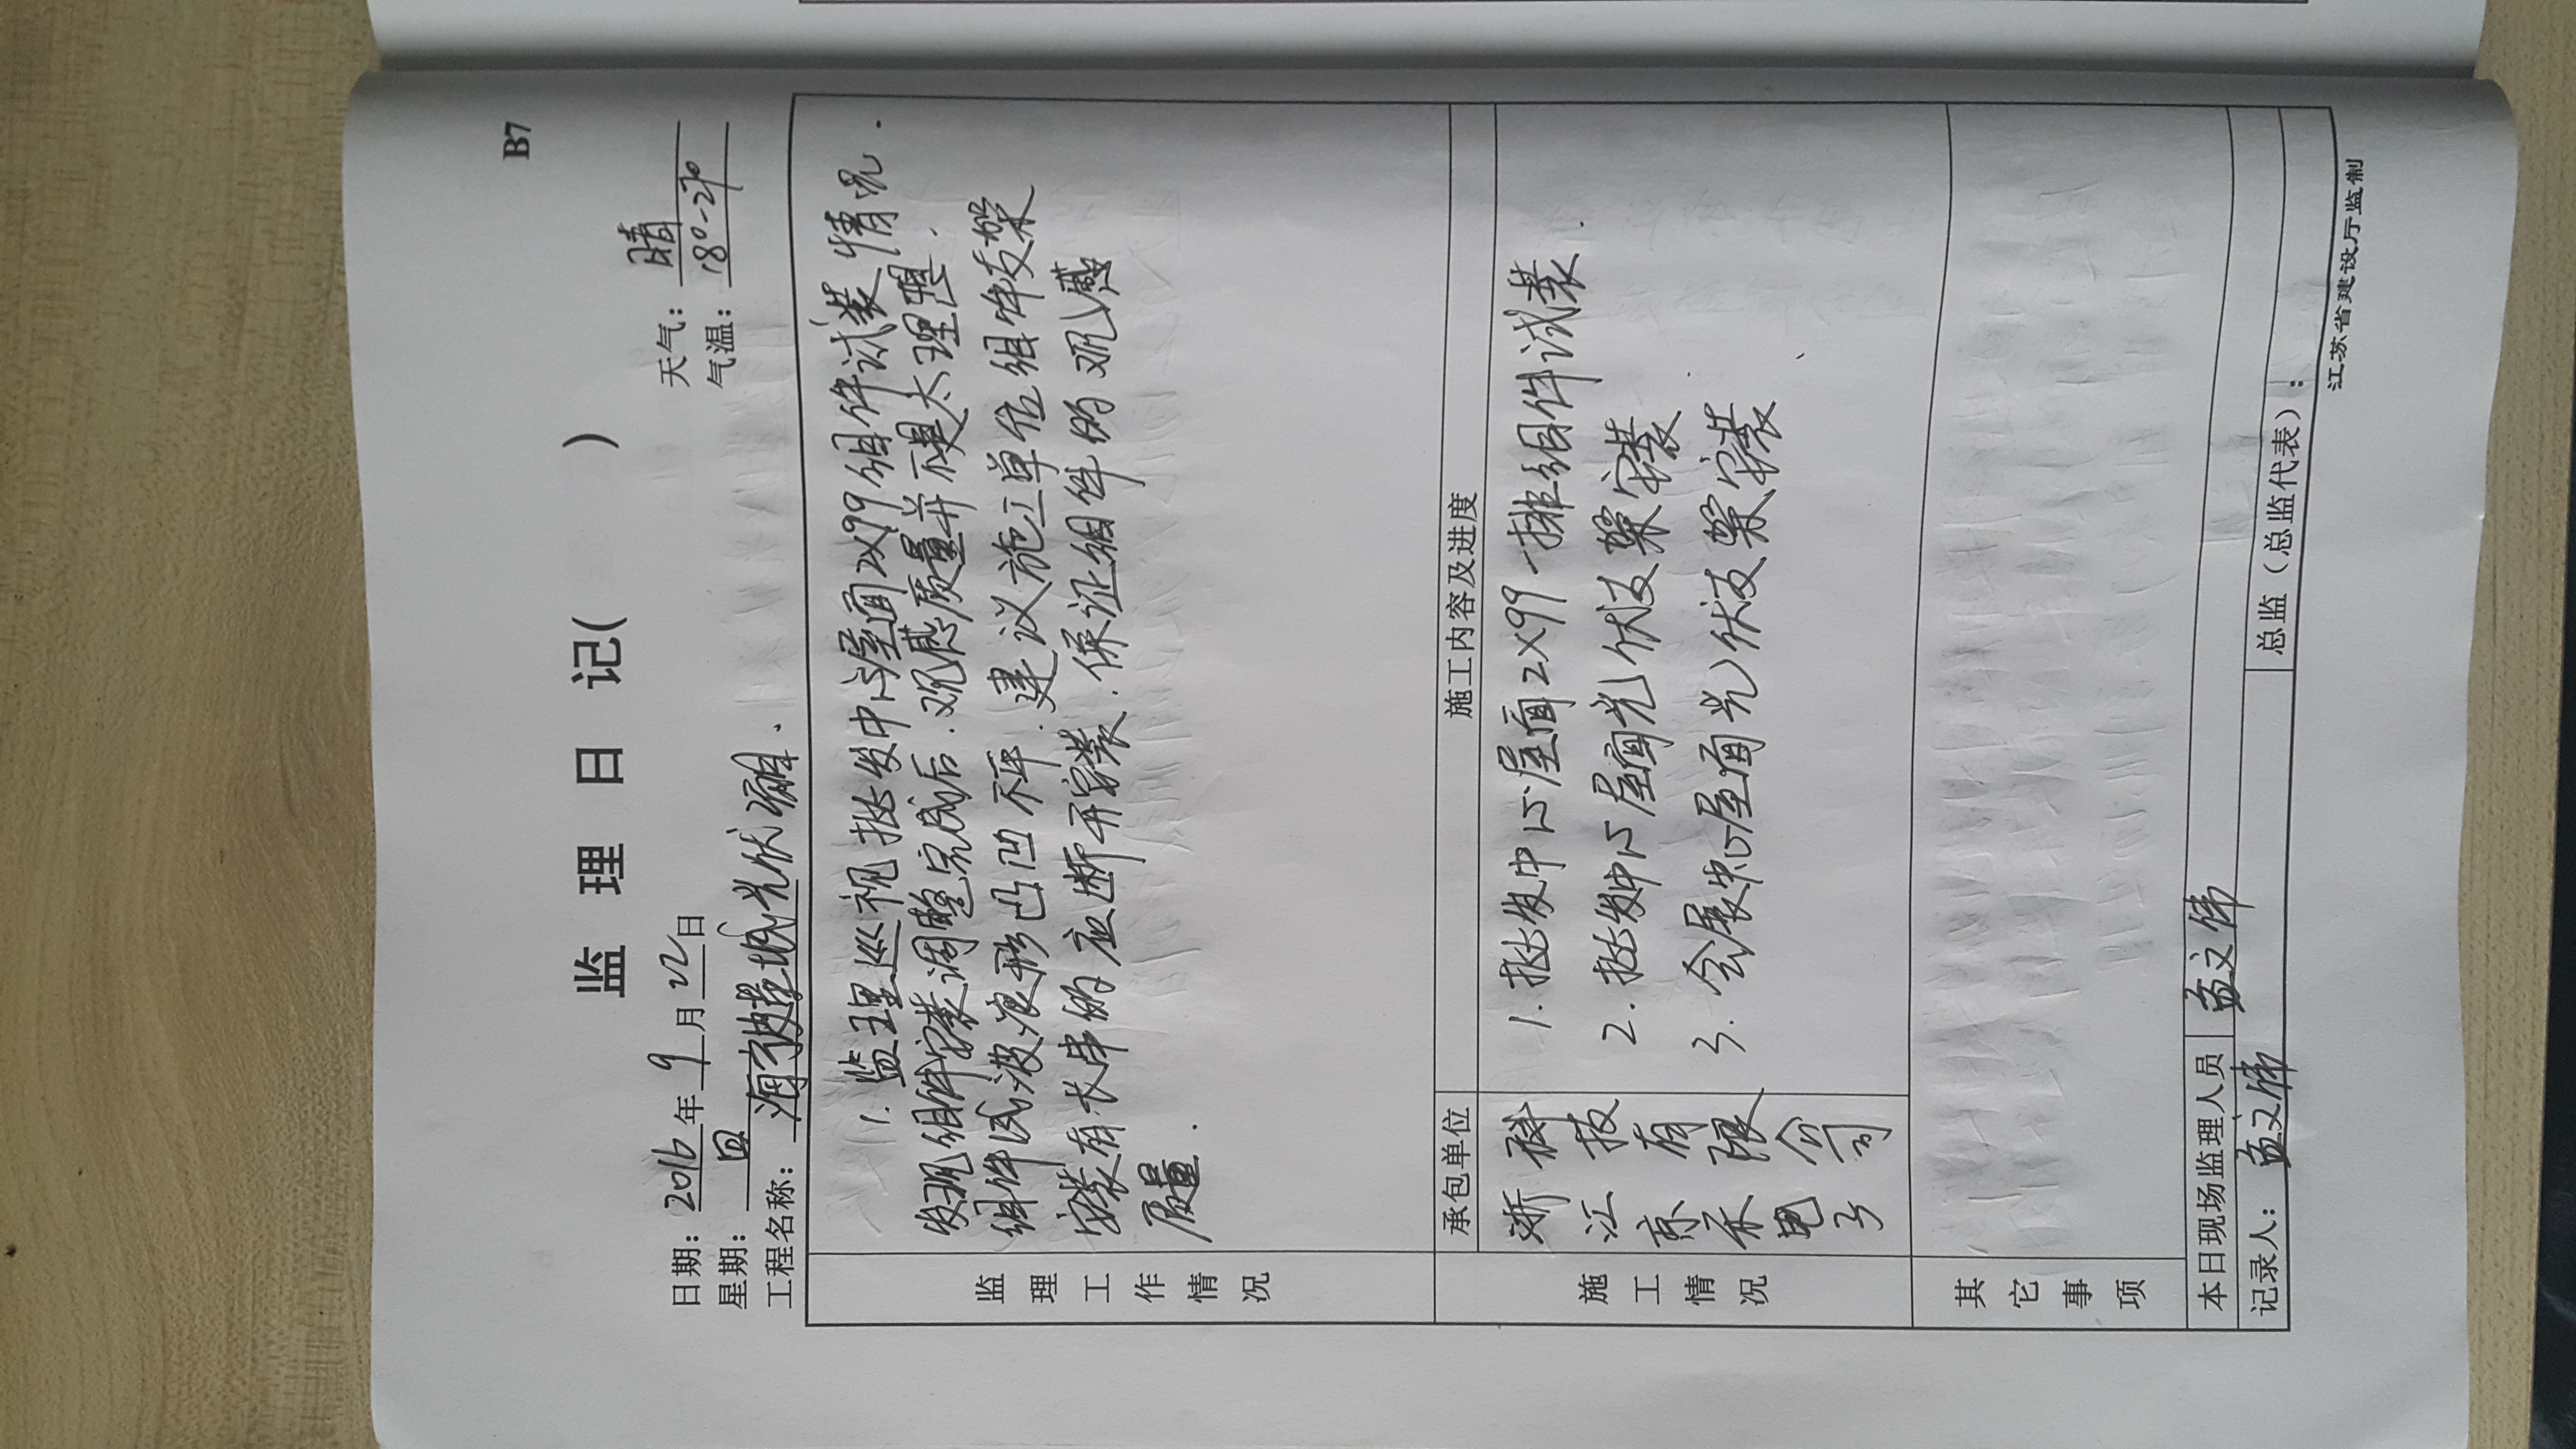 B7
监 理 日 记( )
日期: 2016 年 9 月 22 日 天气: 晴
星期: 四 气温: 18°-27°
工程名称: 海宁皮革城光伏
1. 监理巡视批发中心屋面2X99组件试装情况.
发现组件安装调整完成后.观感质量并不是太理想.
组件成波浪形凸凹不平.建议施工单位组件支架
安装有长串的应断开安装.保证组件的观感
质量.
监理工作情况
承包单位 施工内容及进度
浙江京禾电子科技有限公司
1. 批发中心屋面2X99一排组件试装.
2. 批发中心屋面光伏支架安装
3. 会展中心屋面光伏支架安装
施工情况
其它事项
本日现场监理人员 孟文伟
记录人: 孟文伟 总监(总监代表):
江苏省建设厅监制